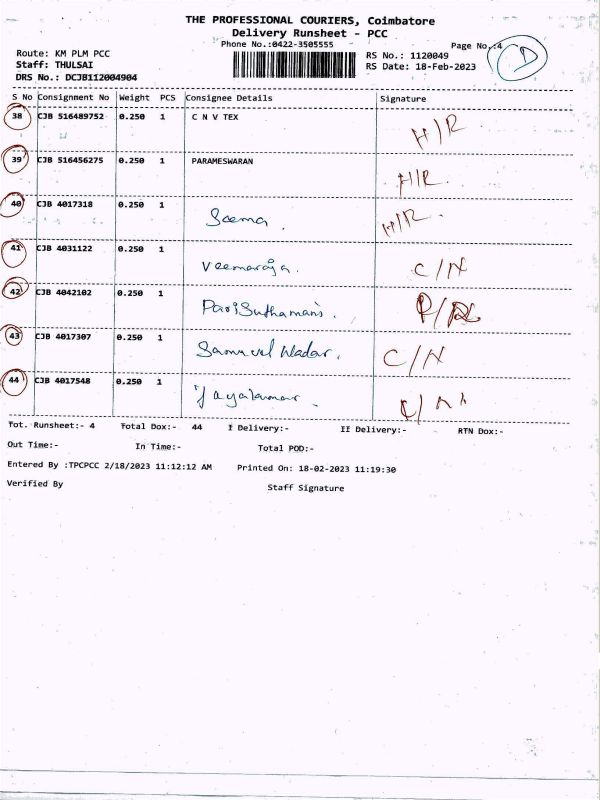 THE PROFESSIONAL COURIERS, Coimbatore
Delivery Runsheet - PCC
Phone No.:0422-3505555
Page No.:4
D
Route: KM PLM PCC
RS No.: 1120049
Staff: THULSAI
RS Date: 18-Feb-2023
DRS No.: DCJB112004904
S No Consignment No Weight PCS Consignee Details Signature
38 CJB 516489752 0.250 1 C N V TEX H/R
39 CJB 516456275 0.250 1 PARAMESWARAN H/R
40 CJB 4017318 0.250 1 Seema. H/R.
41 CJB 4031122 0.250 1 Veemaraja. C/N
42 CJB 4042102 0.250 1 PariSuthamani.
43 CJB 4017307 0.250 1 Samuvel Nadar. C/N
44 CJB 4017548 0.250 1 Jayakumar
Tot. Runsheet:- 4 Total Dox:- 44 I Delivery:- II Delivery:- RTN Dox:-
Out Time:- In Time:- Total POD:-
Entered By :TPCPCC 2/18/2023 11:12:12 AM Printed On: 18-02-2023 11:19:30
Verified By Staff Signature